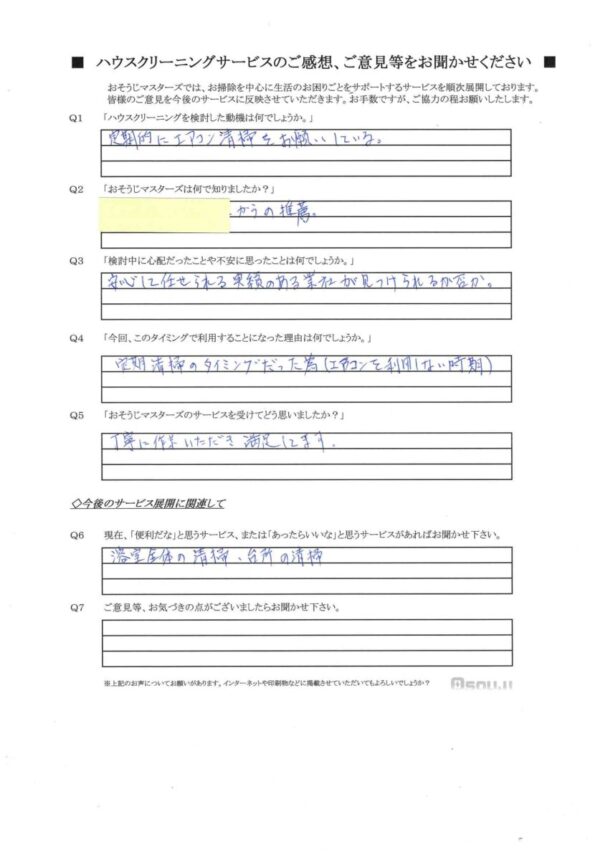 ■ ハウスクリーニングサービスのご感想、ご意見等をお聞かせください ■
おそうじマスターズでは、お掃除を中心に生活のお困りごとをサポートするサービスを順次展開しております。
皆様のご意見を今後のサービスに反映させていただきます。お手数ですが、ご協力の程お願いしたします。
Q1 「ハウスクリーニングを検討した動機は何でしょうか。」
定期的にエアコン清掃をお願いしている。
Q2 「おそうじマスターズは何で知りましたか？」
からの推薦。
Q3 「検討中に心配だったことや不安に思ったことは何でしょうか。」
安心して任せられる実績のある業社が見つけられるか否か。
Q4 「今回、このタイミングで利用することになった理由は何でしょうか。」
定期清掃のタイミングだった為(エアコンを利用しない時期)
Q5 「おそうじマスターズのサービスを受けてどう思いましたか？」
丁寧に作業いただき満足してます。
◇今後のサービス展開に関連して
Q6 現在、「便利だな」と思うサービス、または「あったらいいな」と思うサービスがあればお聞かせ下さい。
浴室全体の清掃、台所の清掃
Q7 ご意見等、お気づきの点がございましたらお聞かせ下さい。
※上記のお声についてお願いがあります。インターネットや印刷物などに掲載させていただいてもよろしいでしょうか？